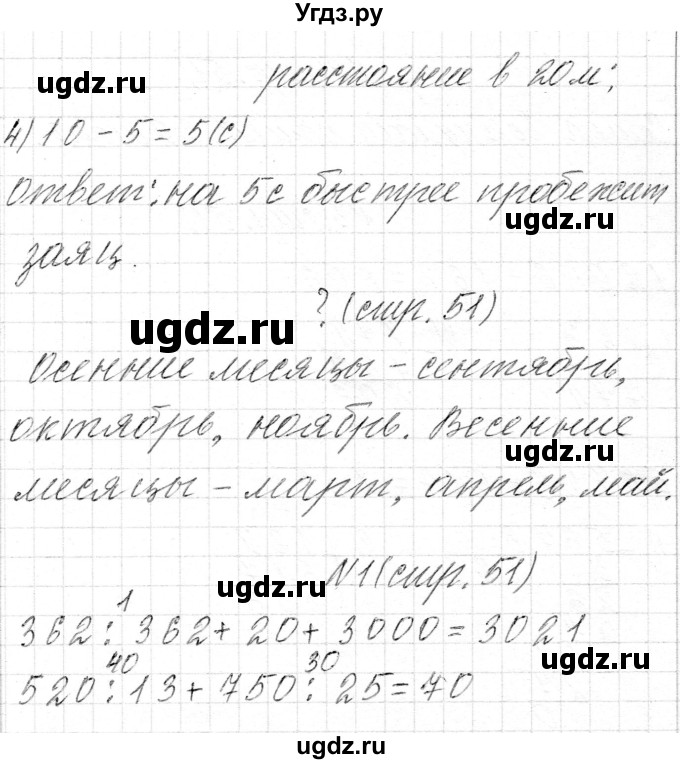 Угдз.ру
расстояние в 20м;
ugdz.ru
4) 10 - 5 = 5(с)
Ответ: на 5с быстрее пробежит
ugdz.ru
заяц.
? (стр. 51)
ugdz.ru
Осенние месяцы - сентябрь,
октябрь, ноябрь. Весенние
ugdz.ru
месяцы - март, апрель, май.
№1 (стр. 51)
ugdz.ru
1
362 : 362 + 20 + 3000 = 3021
ugdz.ru
40 30
520 : 13 + 750 : 25 = 70
ugdz.ru
ugdz.ru